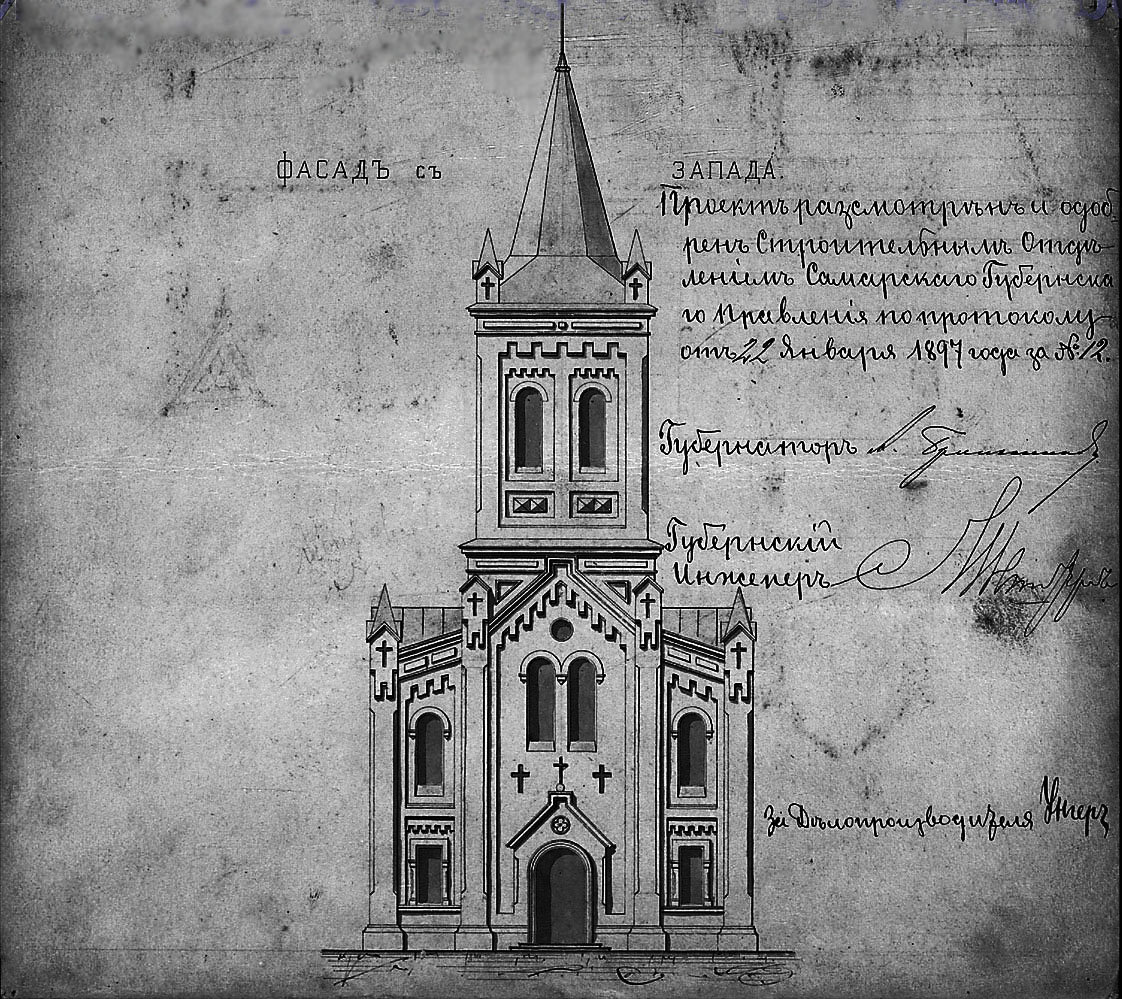 ФАСАДЪ съ ЗАПАДА.
Проектъ разсмотрѣнъ и одоб
ренъ Строительнымъ Отдѣ-
леніемъ Самарскаго Губернска
го Правленія по протоколу
отъ 22 Января 1897 года за № 12.
Губернаторъ А.
Губернскій
Инженеръ
За Дѣлопроизводителя Унгеръ